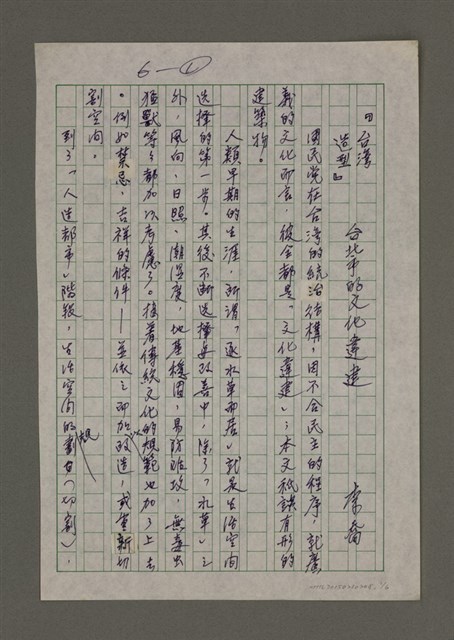 6—①
『台灣
造型』
台北市的文化違建
李喬
國民党在台灣的統治結構,因不合民主的程序,就廣
義的文化而言,彼全都是「文化違建」;本文祇談有形的
建築物。
人類早期的生涯,所謂「逐水草而居」就是生活空间
选擇的第一步。其後不断选擇与改善中,除了「水草」之
外,風向、日照、潮溼度,地基穩固,易防难攻,無毒虫
猛獸等々都加以考慮了。接着傳統文化的規範也加了上去
。例如禁忌,吉祥的條件——並依之而加以改造,或重新切
割空间。
到了「人造都市」階段,生活空间的規劃(切割),